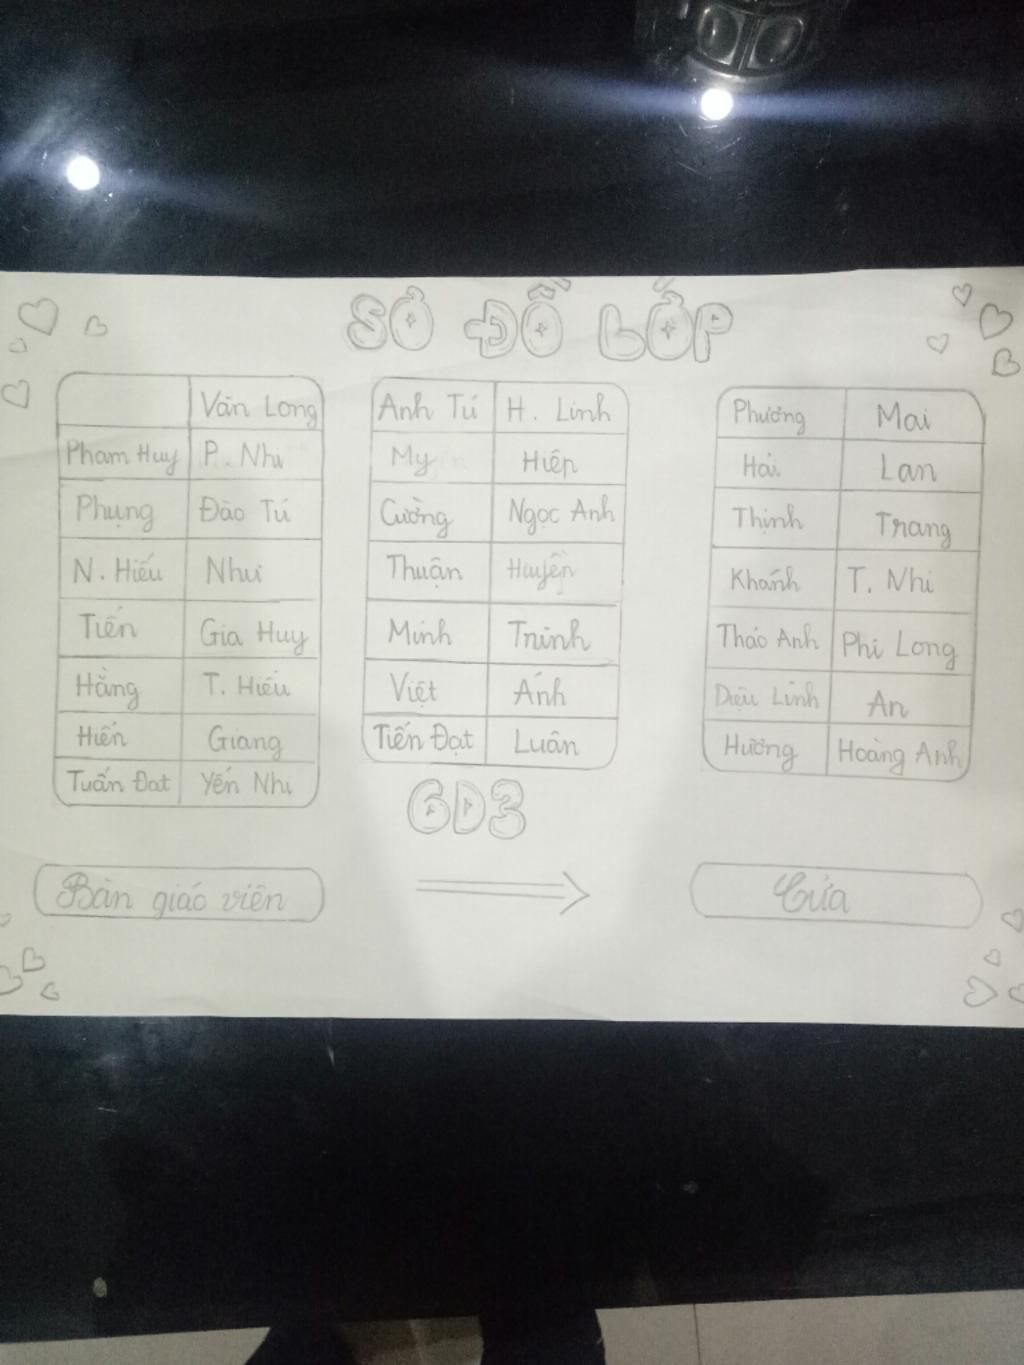 SƠ ĐỒ LỚP
Văn Long
Phạm Huy P. Nhi
Phụng Đào Tú
N. Hiếu Như
Tiến Gia Huy
Hằng T. Hiếu
Hiến Giang
Tuấn Đạt Yến Nhi
Anh Tú H. Linh
My Hiệp
Cường Ngọc Anh
Thuận Huyền
Minh Trinh
Việt Ánh
Tiến Đạt Luân
Phương Mai
Hải Lan
Thịnh Trang
Khánh T. Nhi
Thảo Anh Phi Long
Diệu Linh An
Hương Hoàng Anh
6D3
Bàn giáo viên
Cửa